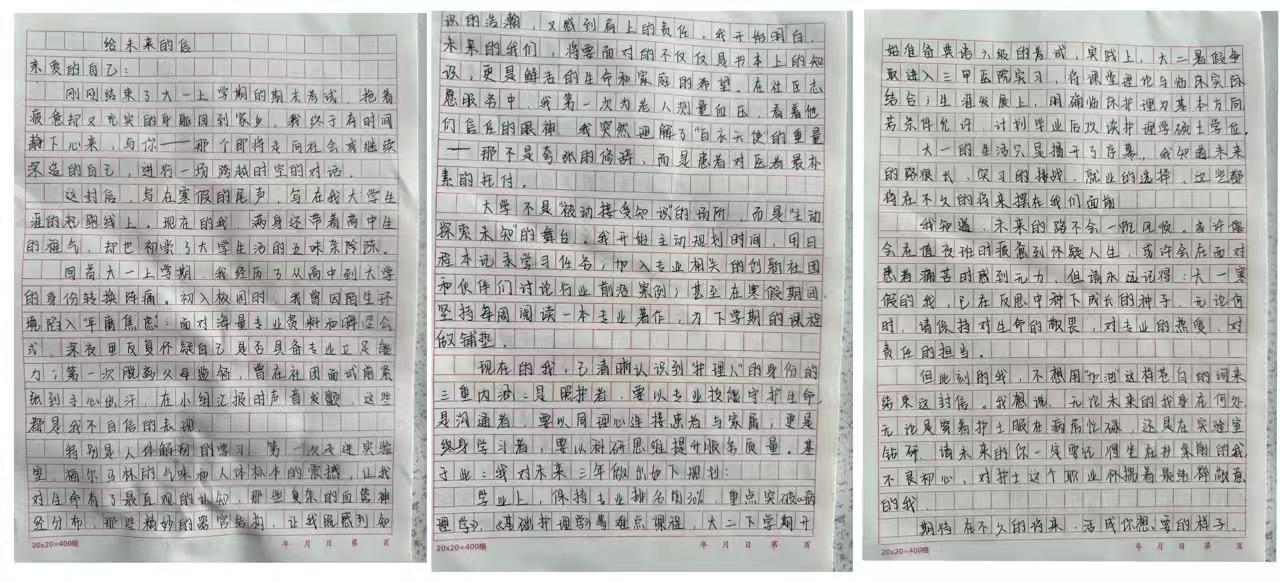 给未来的信
亲爱的自己：
刚刚结束了大一上学期的期末考试，拖着
疲惫却又充实的身躯回到家乡，我终于有时间
静下心来，与你——那个即将走向社会或继续
深造的自己，进行一场跨越时空的对话。
这封信，写在寒假的尾声，写在我大学生
涯的起跑线上。现在的我，满身还带着高中生
的稚气，却也初尝了大学生活的五味杂陈。
回首大一上学期，我经历了从高中到大学
的身份转换阵痛。初入校园时，我曾因陌生环
境陷入"年龄焦虑：面对海量专业资料和晦涩公
式，深夜里反复怀疑自己是否具备专业立足能
力；第一次脱离父母监督，曾在社团面试前紧
张到手心出汗，在小组汇报时声音发颤，这些
都是我不自信的表现。
特别是人体解剖的学习，第一次走进实验
室，福尔马林的气味和人体标本的震撼，让我
对生命有了最直观的认知，那些复杂的血管神
经分布，那些精妙的器官结构，让我既感到知
20×20=400格
年 月 日 第 页
识的浩瀚，又感到肩上的责任。我开始明白，
未来的我们，将要面对的不仅仅是书本上的知
识，更是鲜活的生命和家庭的希望。在社区志
愿服务中，我第一次为老人测量血压，看着他
们信任的眼神，我突然理解了"白衣天使"的重量
——那不是夸张的修辞，而是患者对医者最朴
素的托付。
大学不是"被动接受知识"的场所，而是"主动
探索未知"的舞台。我开始主动规划时间，用日
程本记录学习任务；加入专业相关的创新社团
和伙伴们讨论行业前沿案例；甚至在寒假期间
坚持每周阅读一本专业著作，为下学期的课程
做铺垫。
现在的我，已清晰认识到"护理人"的身份的
三重内涵：是照护者，要以专业技能守护生命
是沟通者，要以同理心连接患者与家属；更是
终身学习者，要以科研思维提升服务质量。基
于此：我对未来三年做出如下规划：
学业上，保持专业排名前30%，重点突破《病
理学》、《基础护理学》等难点课程，大二下学期开
20×20=400格
年 月 日 第 页
始准备英语六级的考试，实践上，大二暑假争
取进入三甲医院实习，将课堂理论与临床实际
结合；生涯发展上，明确临床护理为基本方向
若条件允许，计划毕业后攻读护理学硕士学位。
大一的生活只是揭开了序幕，我知道未来
的路很长，学习的挑战，就业的选择，这些都
将在不久的将来摆在我们面前
我知道，未来的路不会一帆风顺。或许你
会在值夜班时疲惫到怀疑人生，或许会在面对
患者痛苦时感到无力，但请永远记得：大一寒
假的我，已在反思中种下成长的种子，无论何
时，请保持对生命的敬畏，对专业的热爱，对
责任的担当。
但此刻的我，不想用"加油"这样苍白的词来
结束这封信。我想说，无论未来的我身在何处
无论是穿着护士服在病房忙碌，还是在实验室
钻研，请未来的你一定要记得坐在书桌前的我
不艮初心，对护士这个职业怀揣着最纯粹敬意
的我。
期待在不久的将来，活成你想要的样子。
20×20=400格
年 月 日 第 页